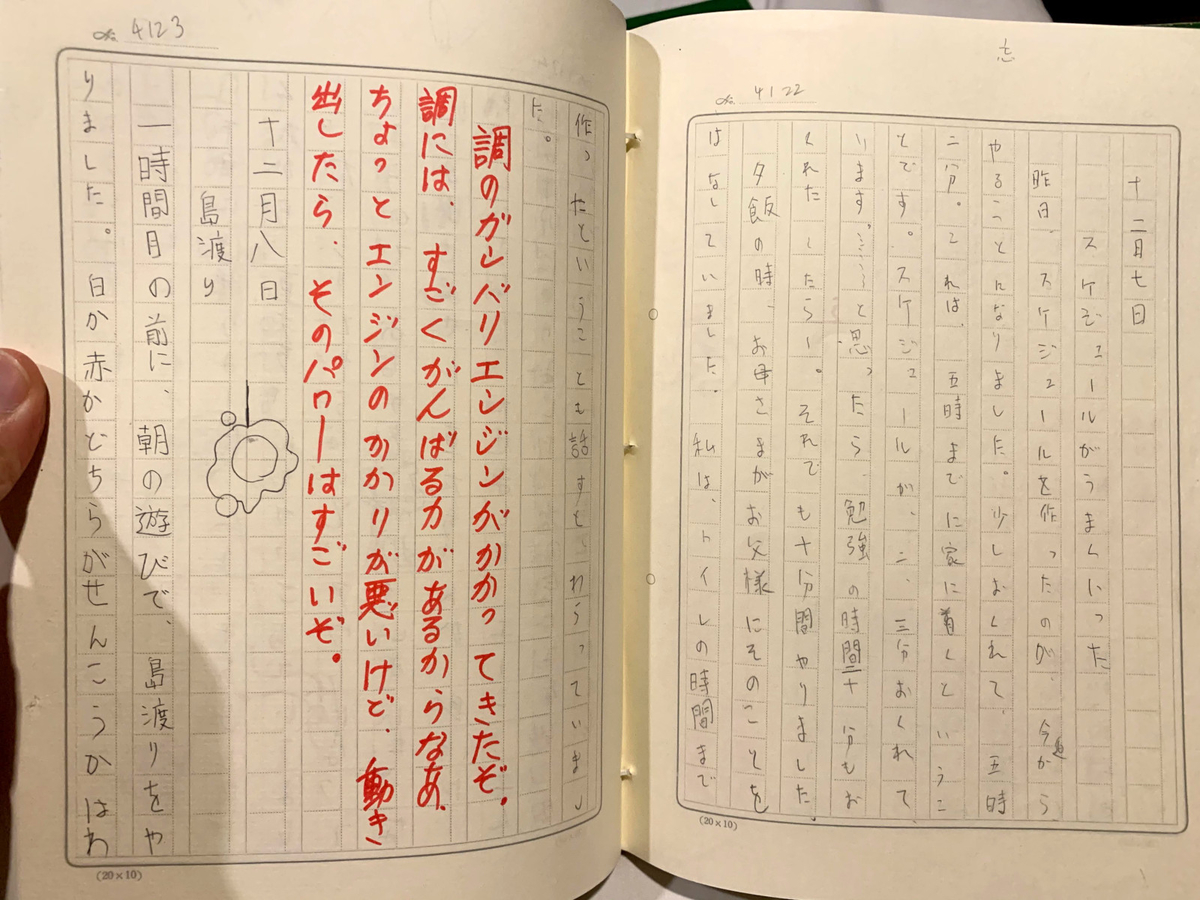 忘
№ 4122
十二月七日
スケジュールがうまくいった
昨日、スケジュールを作ったのが、今から
やることとんなりました。少しおくれて、五時
二分。これは、五時までに家に着くというこ
とです。スケジュールが、二、三分おくれて
います。……と思ったら、勉強の時間二十分もお
くれた ー。それでも十分間やりました.
夕飯の時、お母さまがお父様にそのことを
はなしていました。私は、トイレの時間まで
(20×10)
№ 4123
作ったということも話すと、わらっていまし
た。
調のガンバリエンジンがかかってきたぞ。
調には、すごくがんばる力があるからなあ、
ちょっとエンジンのかかりが悪いけど、動き
出したら、そのパワーはすごいぞ。
十二月八日
島渡り
一時間目の前に、朝の遊びで、島渡りをや
りました。白か赤かどちらがせんこうかはわ
(20×10)